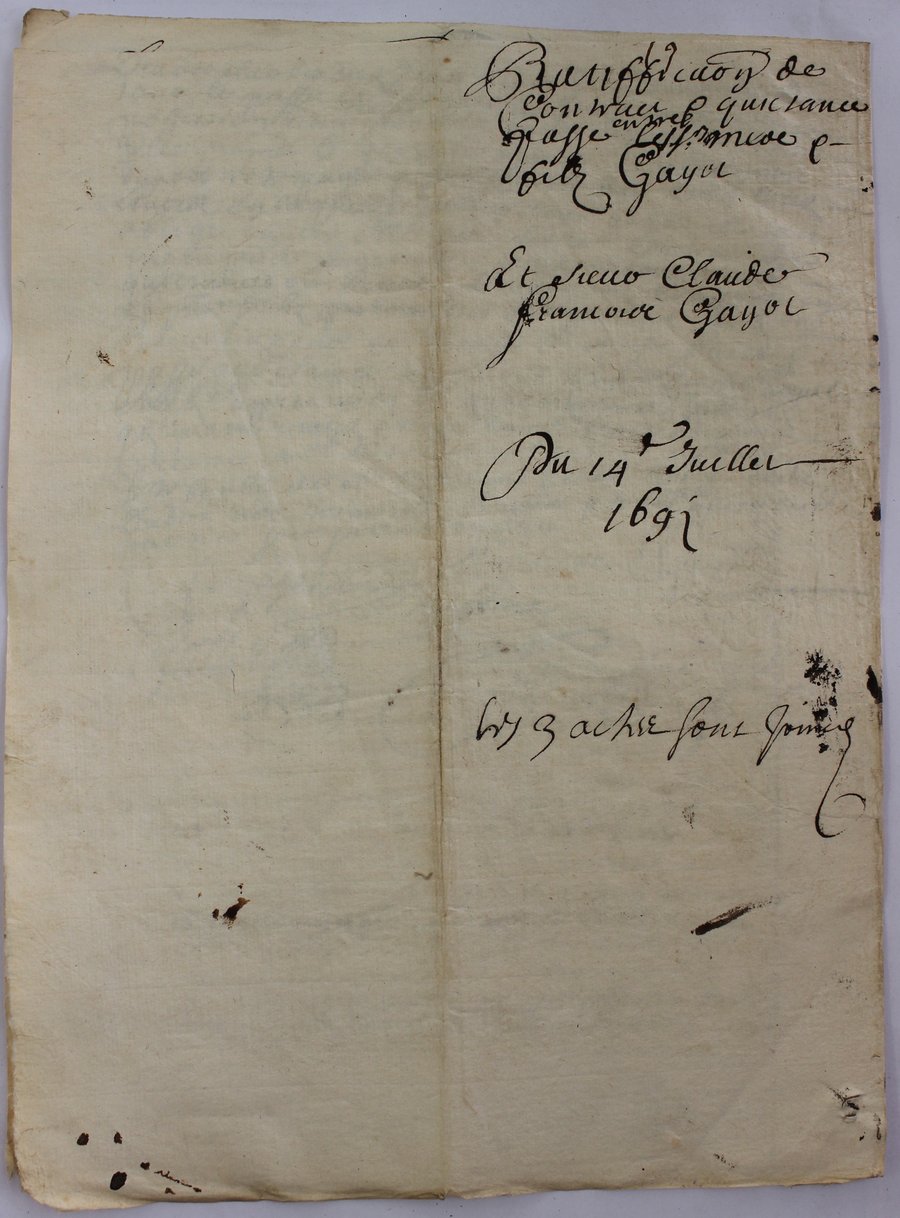 Ratifficaon de
Contract & quictance
passe entre les
filz Gayot
Et sieur Claude
Francois Gayot
Du 14e Juillet
1691
les 3 actes sont joincts